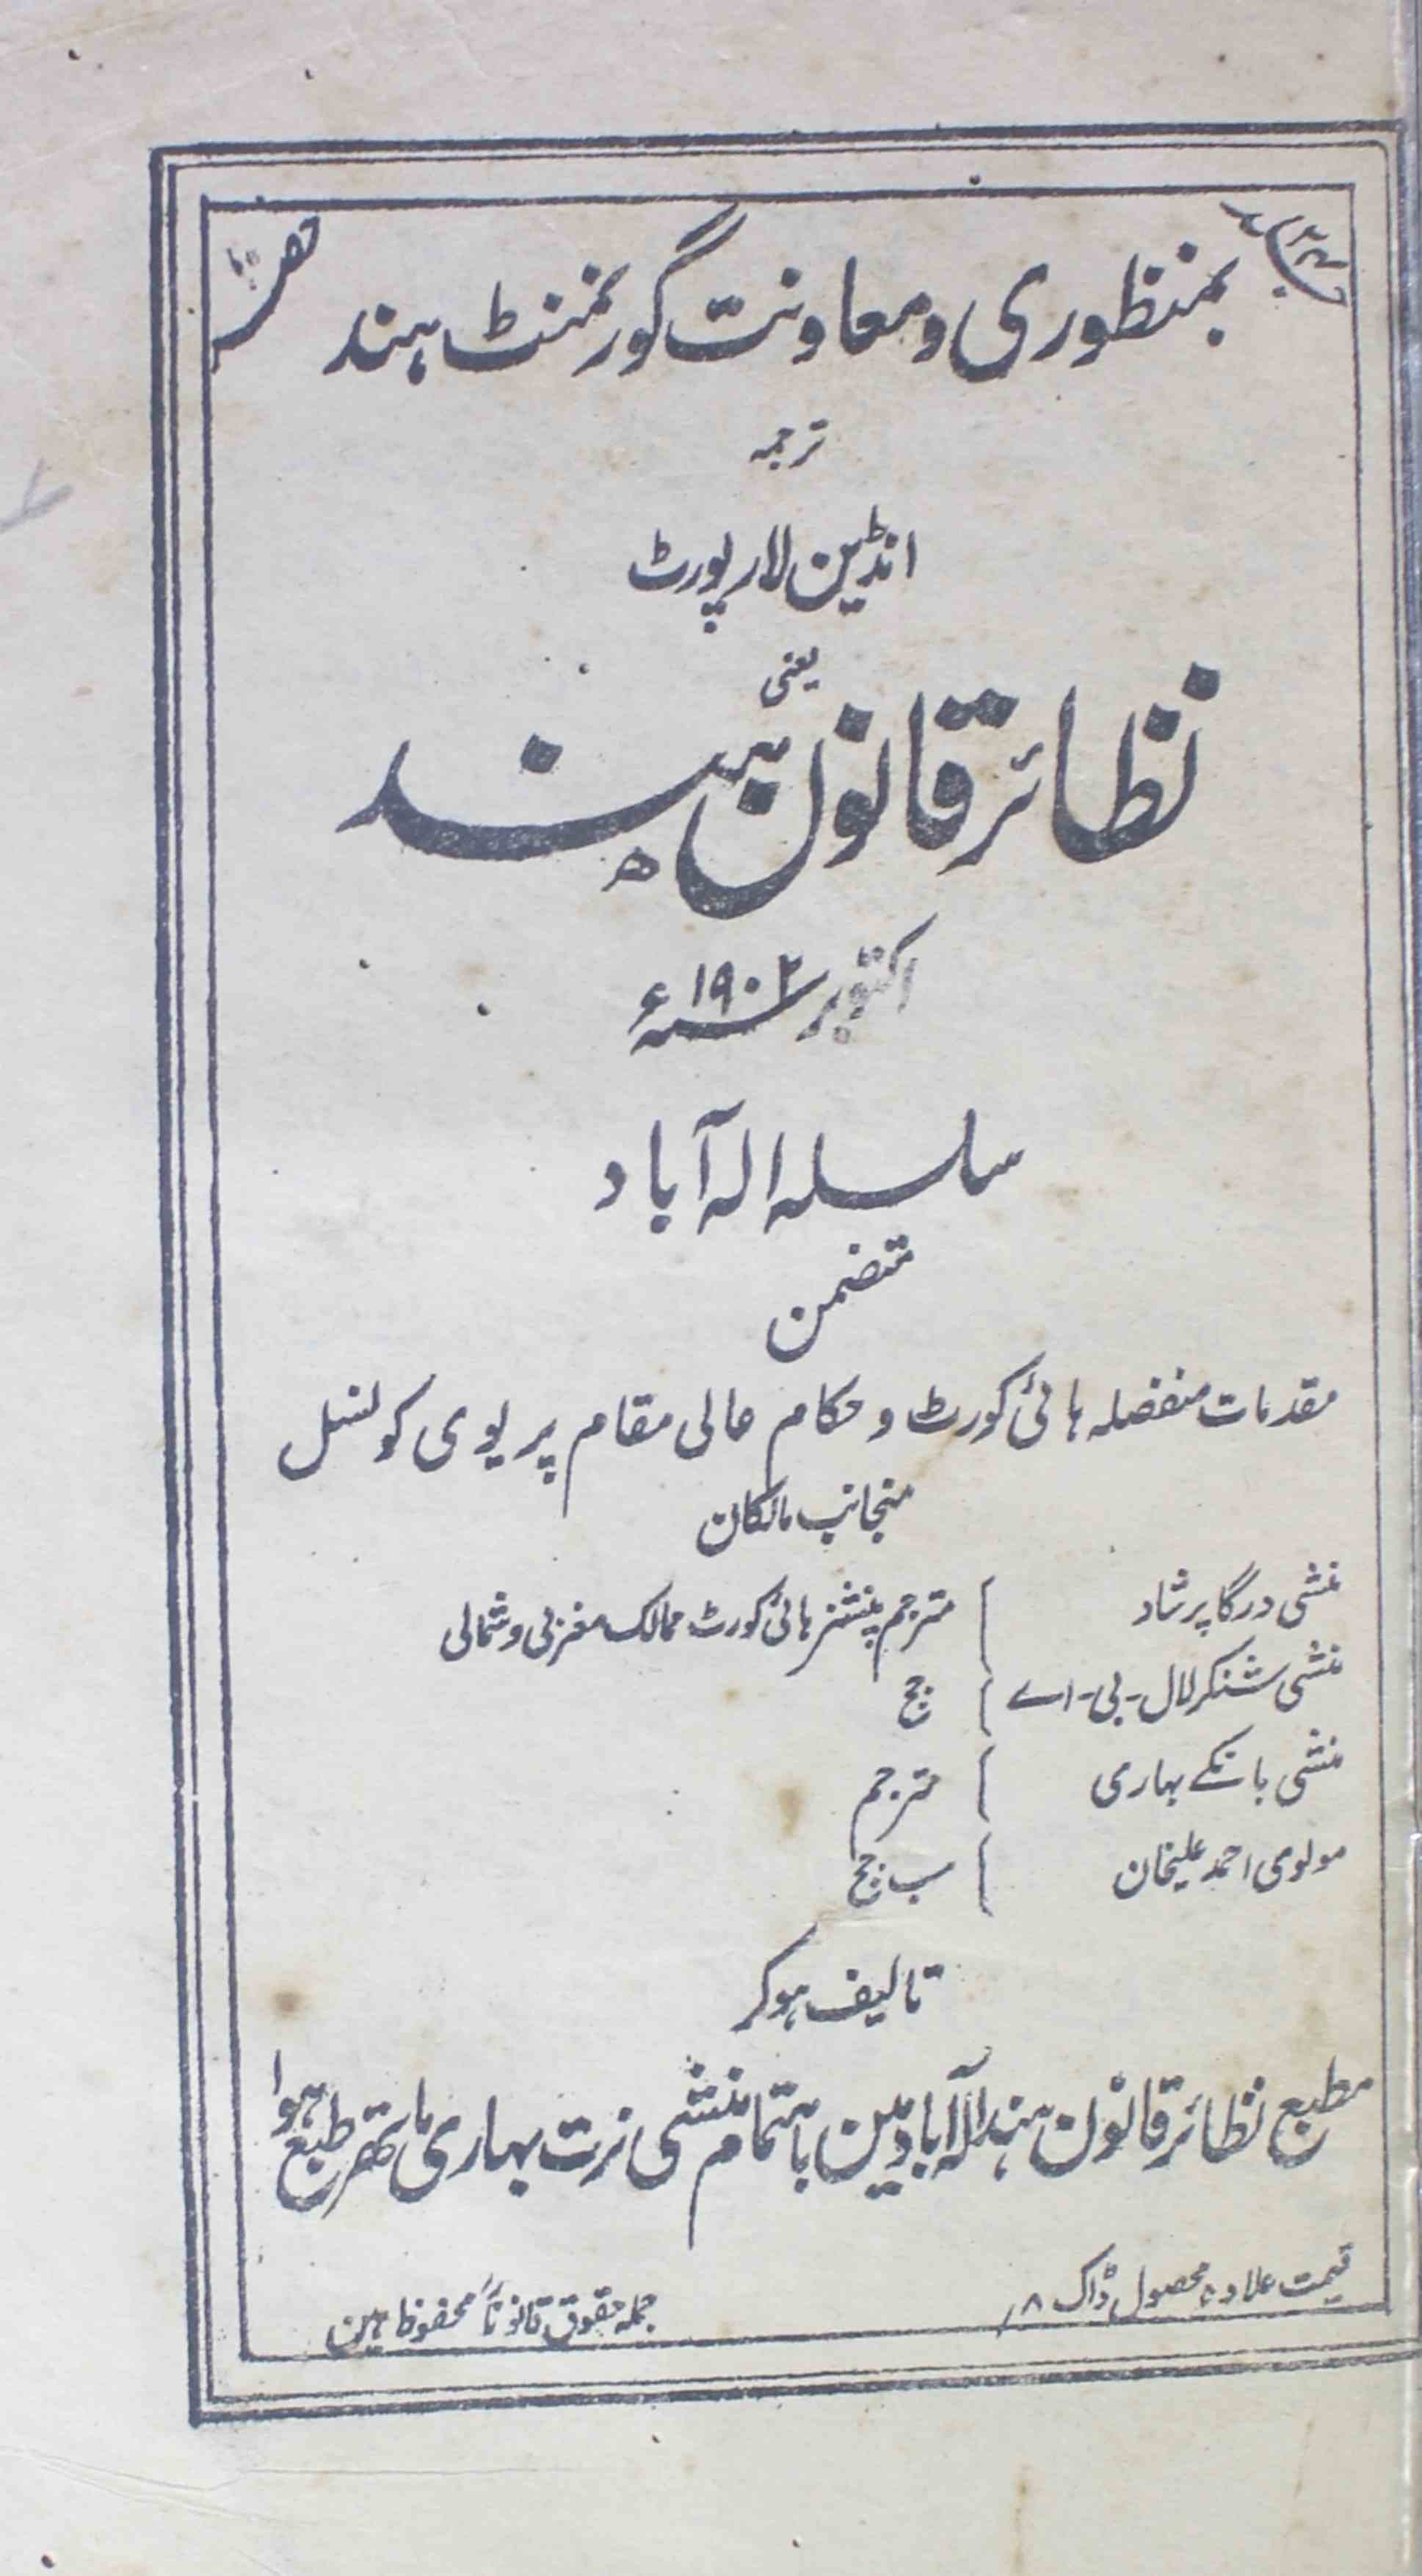 جلد ۲۴
حصہ ۱۰
بمنظوری و معاونت گورنمنٹ ہند
ترجمہ
انڈین لا رپورٹ
یعنی
نظائر قانون ہند
اکتوبر سنہ ۱۹۰۲ء
سلسلہ الہ آباد
متضمن
مقدمات منفصلہ ہائی کورٹ و حکام عالی مقام پریوی کونسل
منجانب مالکان
منشی درگا پرشاد } مترجم پنشنر ہائی کورٹ ممالک مغربی و شمالی
منشی شنکر لال - بی - اے } جج
منشی بانکے بہاری } مترجم
مولوی احمد علیخان } سب جج
تالیف ہوکر
مطبع نظائر قانون ہند الہ آباد مین باہتمام منشی نرت بہاری ماتھر طبع ہوا
قیمت علاوہ محصول ڈاک ۸/
جملہ حقوق قانوناً محفوظ ہین